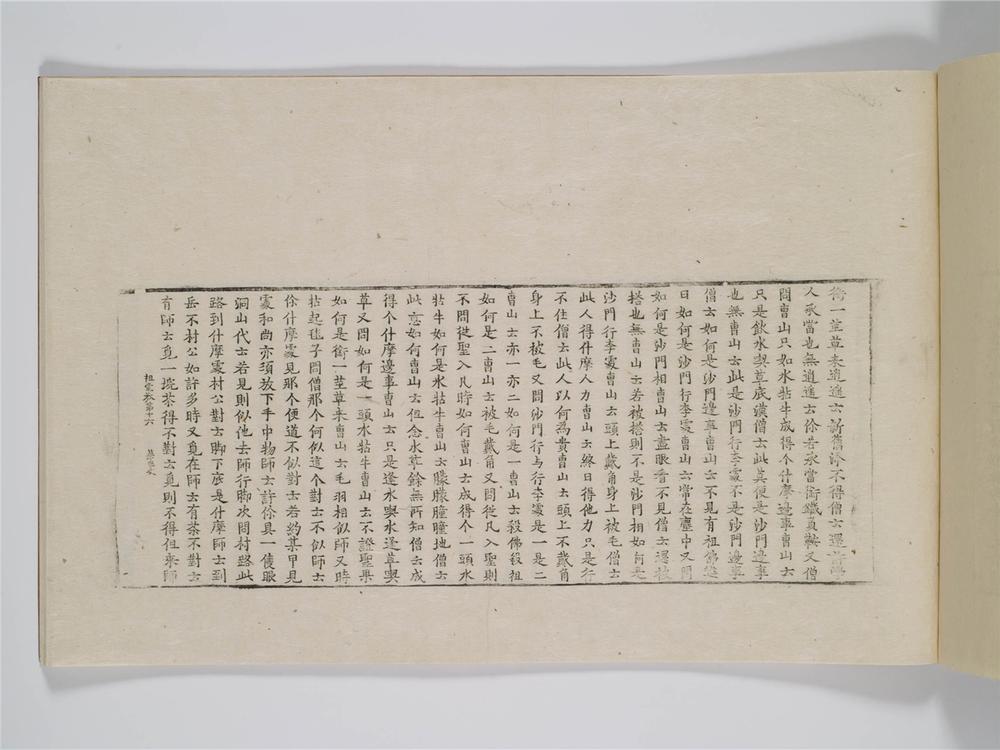 銜一莖草来逍遙云新舊添不得僧云還許學
人承當也無逍遙云你若承當銜鐵負鞍又僧
問曹山只如水牯牛成得个什摩邊事曹山云
只是飲水喫草底漢僧云此莫便是沙門邊事
也無曹山云此是沙門行李處不是沙門邊事
僧云如何是沙門邊事曹山云不見有祖佛進
曰如何是沙門行李處曹山云常在塵中又問
如何是沙門相曹山云盡眼看不見僧云還被
搭也無曹山云若被搭則不是沙門相如何是
沙門行李處曹山云頭上戴角身上被毛僧云
此人得什摩人力曹山云終日得他力只是行
不住僧云此人以何為貴曹山云頭上不戴角
身上不被毛又問沙門行与行李處是一是二
曹山云亦一亦二如何是一曹山云殺佛殺祖
如何是二曹山云被毛戴角又問從凡入聖則
不問從聖入凡時如何曹山云成得个一頭水
牯牛如何是水牯牛曹山云朦朦朣朣地僧云
此意如何曹山云但念水草餘無所知僧云成
得个什摩邊事曹山云只是逢水喫水逢草喫
草又問如何是一頭水牯牛曹山云不證聖果
如何是銜一莖草来曹山云毛羽相似師又時
拈起毬子問僧那个何似這个對云不似師云
你什摩處見那个便道不似對云若約某甲見
處和尚亦須放下手中物師云許你具一隻眼
洞山代云若見則似他去師行脚次問村路此
路到什摩處村公對云脚下底是什摩師云到
岳不村公如許多時又覓在師云有茶不對云
有師云覓一垸茶得不對云覓則不得但来師
祖堂集第十六